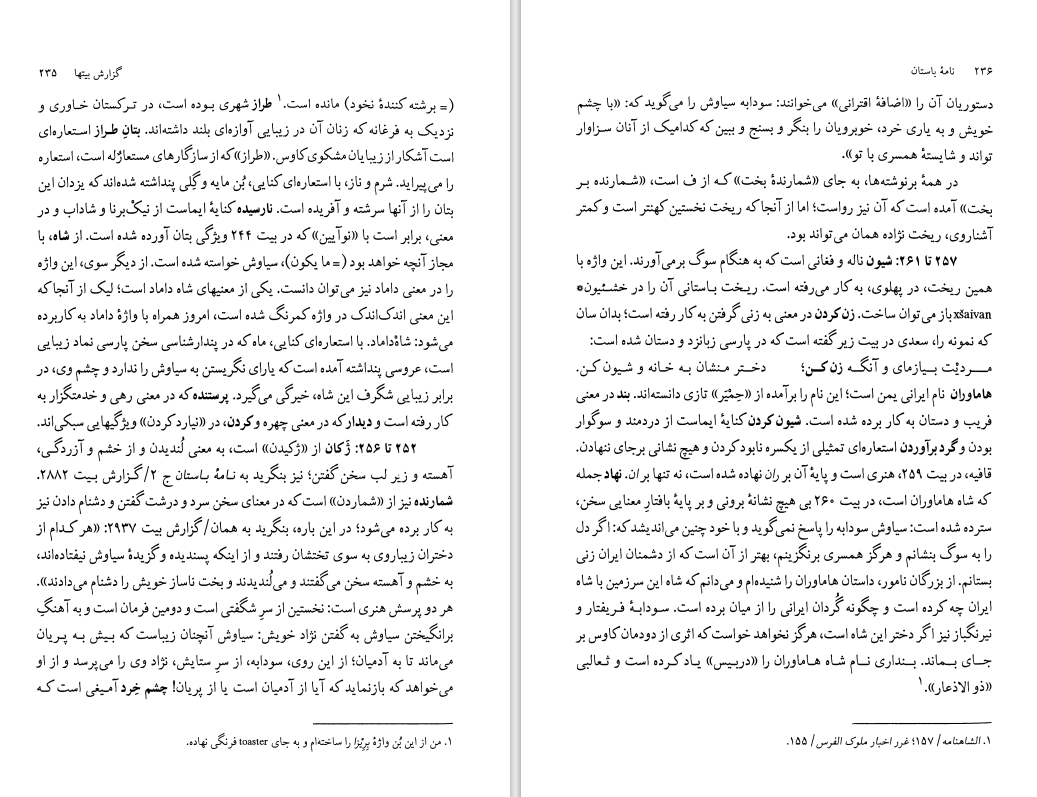 گزارش بیتها ۲۳۵
(= برشته کنندهٔ نخود) مانده است.۱ طراز شهری بوده است، در ترکستان خاوری و
نزدیک به فرغانه که زنان آن در زیبایی آوازه‌ای بلند داشته‌اند. بتانِ طراز استعاره‌ای
است آشکار از زیبایان مشکوی کاوس. «طراز» که از سازگارهای مستعارٌله است، استعاره
را می‌پیراید. شرم و ناز، با استعاره‌ای کنایی، بُن مایه و گِلی پنداشته شده‌اند که یزدان این
بتان را از آنها سرشته و آفریده است. نارسیده کنایهٔ ایماست از نیک‌ْبرنا و شاداب و در
معنی، برابر است با «نوآیین» که در بیت ۲۴۴ ویژگی بتان آورده شده است. از شاه، با
مجاز آنچه خواهد بود (= ما یکون)، سیاوش خواسته شده است. از دیگر سوی، این واژه
را در معنی داماد نیز می‌توان دانست. یکی از معنیهای شاه داماد است؛ لیک از آنجا که
این معنی اندک‌اندک در واژه کمرنگ شده است، امروز همراه با واژهٔ داماد به کار برده
می‌شود: شاه‌داماد. با استعاره‌ای کنایی، ماه که در پندارشناسی سخن پارسی نماد زیبایی
است، عروسی پنداشته آمده است که یارای نگریستن به سیاوش را ندارد و چشم وی، در
برابر زیبایی شگرف این شاه، خیرگی می‌گیرد. پرستنده که در معنی رهی و خدمتگزار به
کار رفته است و دیدار که در معنی چهره و کردن، در «نیارد کردن» ویژگیهایی سبکی‌اند.
۲۵۲ تا ۲۵۶: ژَکان از «ژکیدن» است، به معنی لُندیدن و از خشم و آزردگی،
آهسته و زیر لب سخن گفتن؛ نیز بنگرید به نامهٔ باستان ج ۲/ گزارش بیت ۲۸۸۲.
شمارنده نیز از «شماردن» است که در معنای سخن سرد و درشت گفتن و دشنام دادن نیز
به کار برده می‌شود؛ در این باره، بنگرید به همان/ گزارش بیت ۲۹۳۷: «هر کدام از
دختران زیباروی به سوی تختشان رفتند و از اینکه پسندیده و گزیدهٔ سیاوش نیفتاده‌اند،
به خشم و آهسته سخن می‌گفتند و می‌لُندیدند و بخت ناساز خویش را دشنام می‌دادند».
هر دو پرسش هنری است: نخستین از سرِ شگفتی است و دومین فرمان است و به آهنگِ
برانگیختن سیاوش به گفتن نژاد خویش: سیاوش آنچنان زیباست که بیش به پریان
می‌ماند تا به آدمیان؛ از این روی، سودابه، از سرِ ستایش، نژاد وی را می‌پرسد و از او
می‌خواهد که بازنماید که آیا از آدمیان است یا از پریان! چشم خِرد آمیغی است که
۱. من از این بُن واژهٔ پِریْزا را ساخته‌ام و به جای toaster فرنگی نهاده.
۲۳۶ نامهٔ باستان
دستوریان آن را «اضافهٔ اقترانی» می‌خوانند: سودابه سیاوش را می‌گوید که: «با چشم
خویش و به یاری خرد، خوبرویان را بنگر و بسنج و ببین که کدامیک از آنان سزاوار
تواند و شایستهٔ همسری با تو».
در همهٔ برنوشته‌ها، به جای «شمارندهٔ بخت» که از ف است، «شمارنده بر
بخت» آمده است که آن نیز رواست؛ اما از آنجا که ریخت نخستین کهنتر است و کمتر
آشناروی، ریخت نژاده همان می‌تواند بود.
۲۵۷ تا ۲۶۱: شیون ناله و فغانی است که به هنگام سوگ برمی‌آورند. این واژه با
همین ریخت، در پهلوی، به کار می‌رفته است. ریخت باستانی آن را در خشئیون*
xšaivan باز می‌توان ساخت. زن کردن در معنی به زنی گرفتن به کار رفته است؛ بدان سان
که نمونه را، سعدی در بیت زیر گفته است که در پارسی زبانزد و دستان شده است:
مردیْت بیازمای و آنگه زن کن؛ دختر منشان به خانه و شیون کن.
هاماوران نام ایرانی یمن است؛ این نام را برآمده از «حِمْیَر» تازی دانسته‌اند. بند در معنی
فریب و دستان به کار برده شده است. شیون کردن کنایهٔ ایماست از دردمند و سوگوار
بودن و گرد برآوردن استعاره‌ای تمثیلی از یکسره نابود کردن و هیچ نشانی برجای ننهادن.
قافیه، در بیت ۲۵۹، هنری است و پایهٔ آن بر ران نهاده شده است، نه تنها بر ان. نهاد جمله
که شاه هاماوران است، در بیت ۲۶۰ بی هیچ نشانهٔ برونی و بر پایهٔ بافتارِ معنایی سخن،
سترده شده است: سیاوش سودابه را پاسخ نمی‌گوید و با خود چنین می‌اندیشد که: اگر دل
را به سوگ بنشانم و هرگز همسری برنگزینم، بهتر از آن است که از دشمنان ایران زنی
بستانم. از بزرگان نامور، داستان هاماوران را شنیده‌ام و می‌دانم که شاه این سرزمین با شاه
ایران چه کرده است و چگونه گُردان ایرانی را از میان برده است. سودابهٔ فریفتار و
نیرنگباز نیز اگر دختر این شاه است، هرگز نخواهد خواست که اثری از دودمان کاوس بر
جای بماند. بنداری نام شاه هاماوران را «دربیس» یاد کرده است و ثعالبی
«ذو الاذعار».۱
۱. الشاهنامه/ ۱۵۷؛ غرر اخبار ملوک الفرس/ ۱۵۵.